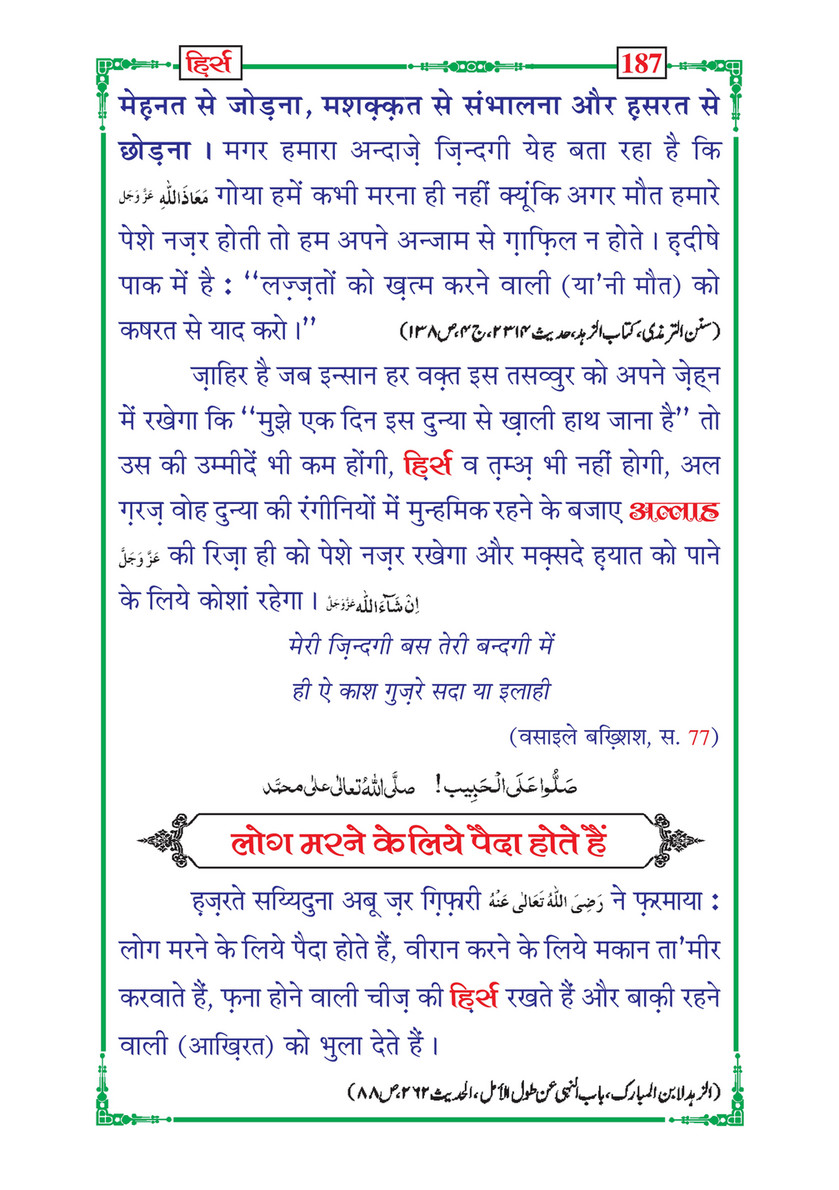 हि़र्स
187
मेह़नत से जोड़ना, मशक़्क़त से संभालना और ह़सरत से
छोड़ना । मगर हमारा अन्दाजे़ ज़िन्दगी येह बता रहा है कि
مَعَاذَ اللّٰهِ عَزَّوَجَلَّ गोया हमें कभी मरना ही नहीं क्यूंकि अगर मौत हमारे
पेशे नज़र होती तो हम अपने अन्जाम से ग़ाफ़िल न होते । ह़दीषे
पाक में है : ‘‘लज़्ज़तों को ख़त्म करने वाली (या'नी मौत) को
कषरत से याद करो ।’’ (سنن الترمذی، کتاب الزھد،حدیث ۲۳۱۴،ج۴،ص۱۳۸)
ज़ाहिर है जब इन्सान हर वक़्त इस तसव्वुर को अपने ज़ेह्न
में रखेगा कि ‘‘मुझे एक दिन इस दुन्या से ख़ाली हाथ जाना है’’ तो
उस की उम्मीदें भी कम होंगी, हि़र्स व त़म्अ़ भी नहीं होगी, अल
ग़रज़ वोह दुन्या की रंगीनियों में मुन्हमिक रहने के बजाए अल्लाह
عَزَّوَجَلَّ की रिज़ा ही को पेशे नज़र रखेगा और मक़्सदे ह़यात को पाने
के लिये कोशां रहेगा । اِنْ شَآءَ اللّٰه عَزَّوَجَلَّ
मेरी ज़िन्दगी बस तेरी बन्दगी में
ही ऐ काश गुज़रे सदा या इलाही
(वसाइले बख़्शिश, स. 77)
صَلُّوا عَلَى الْحَبِيب! صلَّى اللهُ تعالى على محمَّد
लोग मरने के लिये पैदा होते हैं
ह़ज़रते सय्यिदुना अबू ज़र ग़िफ़ारी رَضِيَ اللّٰهُ تَعَالٰى عَنْهُ ने फ़रमाया :
लोग मरने के लिये पैदा होते हैं, वीरान करने के लिये मकान ता'मीर
करवाते हैं, फ़ना होने वाली चीज़ की हि़र्स रखते हैं और बाक़ी रहने
वाली (आख़िरत) को भुला देते हैं ।
(الزھد لابن المبارک، باب النھی عن طول الأمل،الحدیث ۲۶۲،ص۸۸)